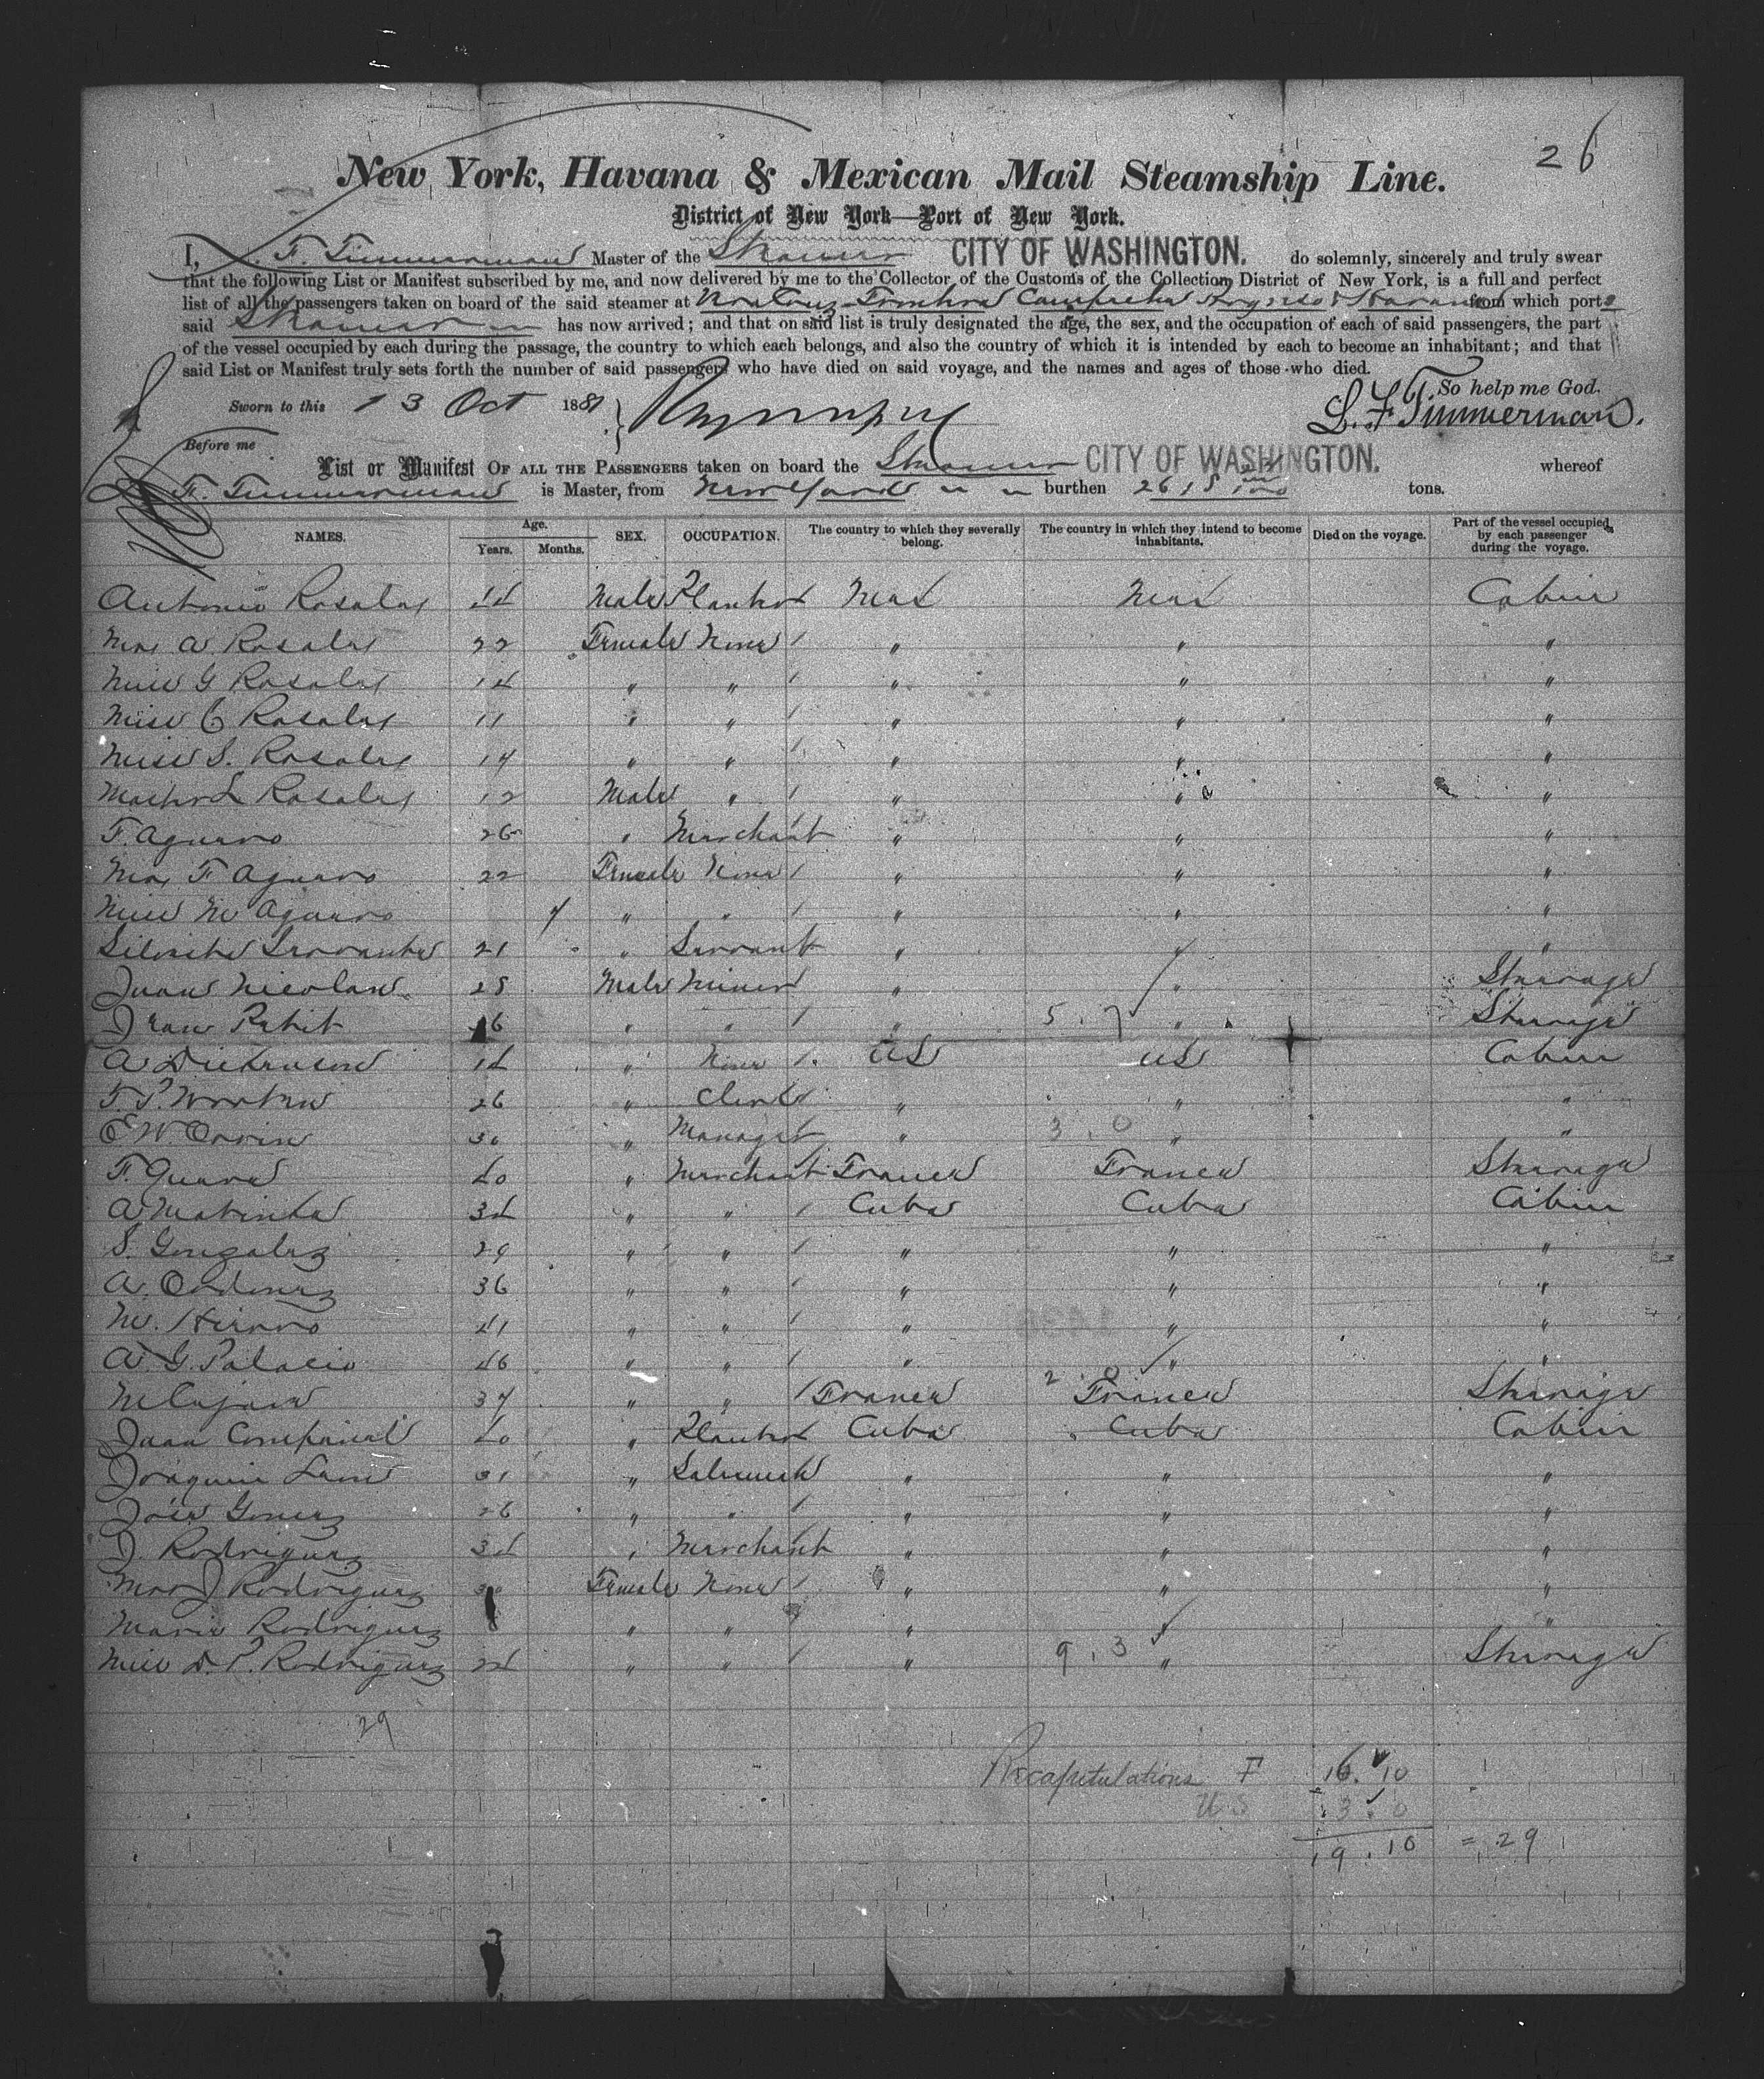 26
New York, Havana & Mexican Mail Steamship Line.
District of New York—Port of New York.
I, L. F. Timmerman Master of the Steamer CITY OF WASHINGTON. do solemnly, sincerely and truly swear
that the following List or Manifest subscribed by me, and now delivered by me to the Collector of the Customs of the Collection District of New York, is a full and perfect
list of all the passengers taken on board of the said steamer at Vera Cruz Frontera Campeche Progreso & Havana from which ports
said Steamer has now arrived; and that on said list is truly designated the age, the sex, and the occupation of each of said passengers, the part
of the vessel occupied by each during the passage, the country to which each belongs, and also the country of which it is intended by each to become an inhabitant; and that
said List or Manifest truly sets forth the number of said passengers who have died on said voyage, and the names and ages of those who died.
So help me God.
Sworn to this 13 Oct 1881 L. F. Timmerman.
Before me
List or Manifest OF ALL THE PASSENGERS taken on board the Steamer CITY OF WASHINGTON. whereof
L. F. Timmerman is Master, from New York " " burthen 2618 tons.
NAMES. Age. Years. Months. SEX. OCCUPATION. The country to which they severally belong. The country in which they intend to become inhabitants. Died on the voyage. Part of the vessel occupied by each passenger during the voyage.
Antonio Rosales 44 Male Planter Mex Mex Cabin
Mrs A. Rosales 22 Female None " " "
Miss G Rosales 14 " " " " "
Miss C Rosales 11 " " " " "
Miss S. Rosales 14 " " " " "
Master L Rosales 12 Male " " " "
F. Aguero 26 " Merchant " " "
Mrs F Aguero 22 Female None " " "
Miss M Aguero 7 " " " " "
21 " Servant " " "
Juan Nicolas 28 Male Miner " " Steerage
Jean Petit 26 " " " 5.7 " Steerage
A Dickenson 14 " None US US Cabin
26 " Clerk " " "
E W. Orrin 30 " Manager " 3.0 " "
F. 40 " Merchant France France Steerage
A 34 " " Cuba Cuba Cabin
S. Gonzalez 29 " " " " "
A. Ordonez 36 " " " " "
M. Hierro 41 " " " " "
A. G. Palacio 46 " " " " "
37 " " France 2.0 France Steerage
Juan 40 " Planter Cuba Cuba Cabin
Joaquin 31 " Salesman " " "
José Gomez 26 " " " " "
J. Rodriguez 34 " Merchant " " "
Mrs J Rodriguez 30 Female None " " "
Maria Rodriguez 8 " " " " "
Miss D. P. Rodriguez 24 " " " 9.3 " Steerage
29
Recapitulations F 16.10
US 3.0
19.10 = 29